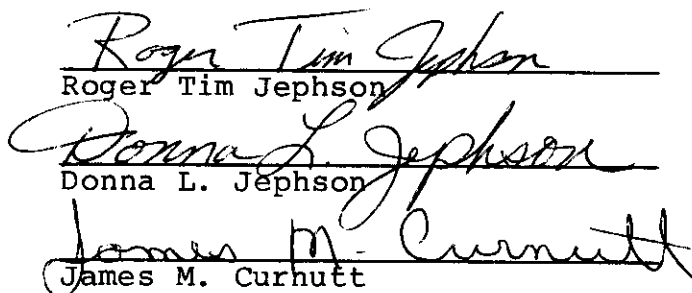 Roger Tim Jephson
Roger Tim Jephson
Donna L. Jephson
Donna L. Jephson
James M. Curnutt
James M. Curnutt